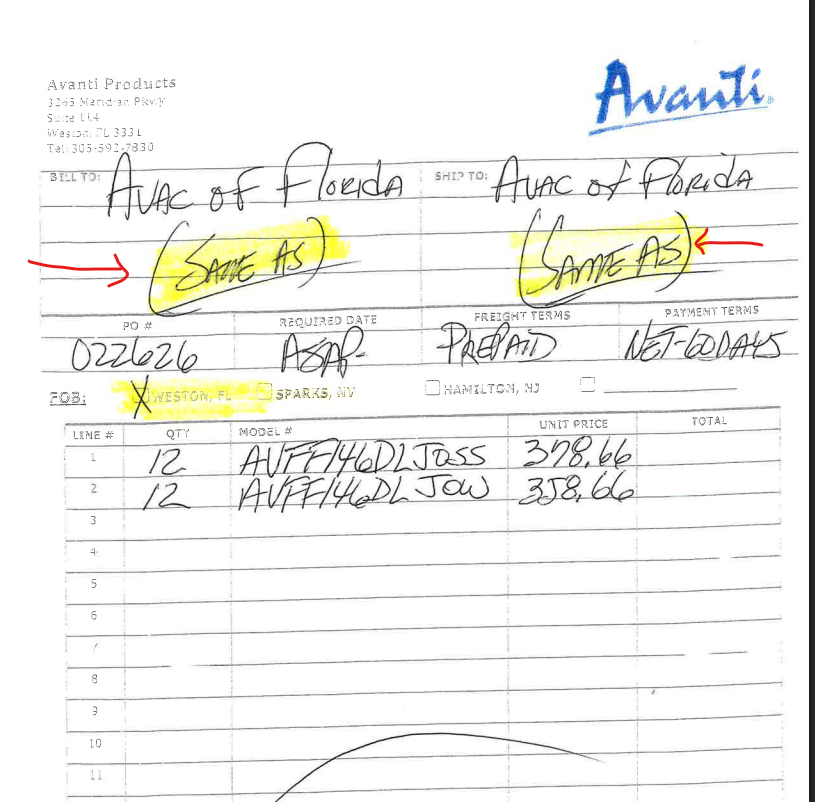 Avanti Products
3265 Meridian Pkwy
Suite 114
Weston, FL 3331
Tel: 305-592-7830
Avanti
BILL TO: AVAC OF FLORIDA
SHIP TO: AVAC of FLORIDA
(SAME AS)
(SAME AS)
PO # REQUIRED DATE FREIGHT TERMS PAYMENT TERMS
022626 ASAP- PREPAID NET-60DAYS
FOB: X WESTON, FL SPARKS, NV HAMILTON, NJ
LINE # QTY MODEL # UNIT PRICE TOTAL
1 12 AVFF146DLJOSS 378.66
2 12 AVFF146DLJOW 358.66
3
4
5
6
7
8
9
10
11